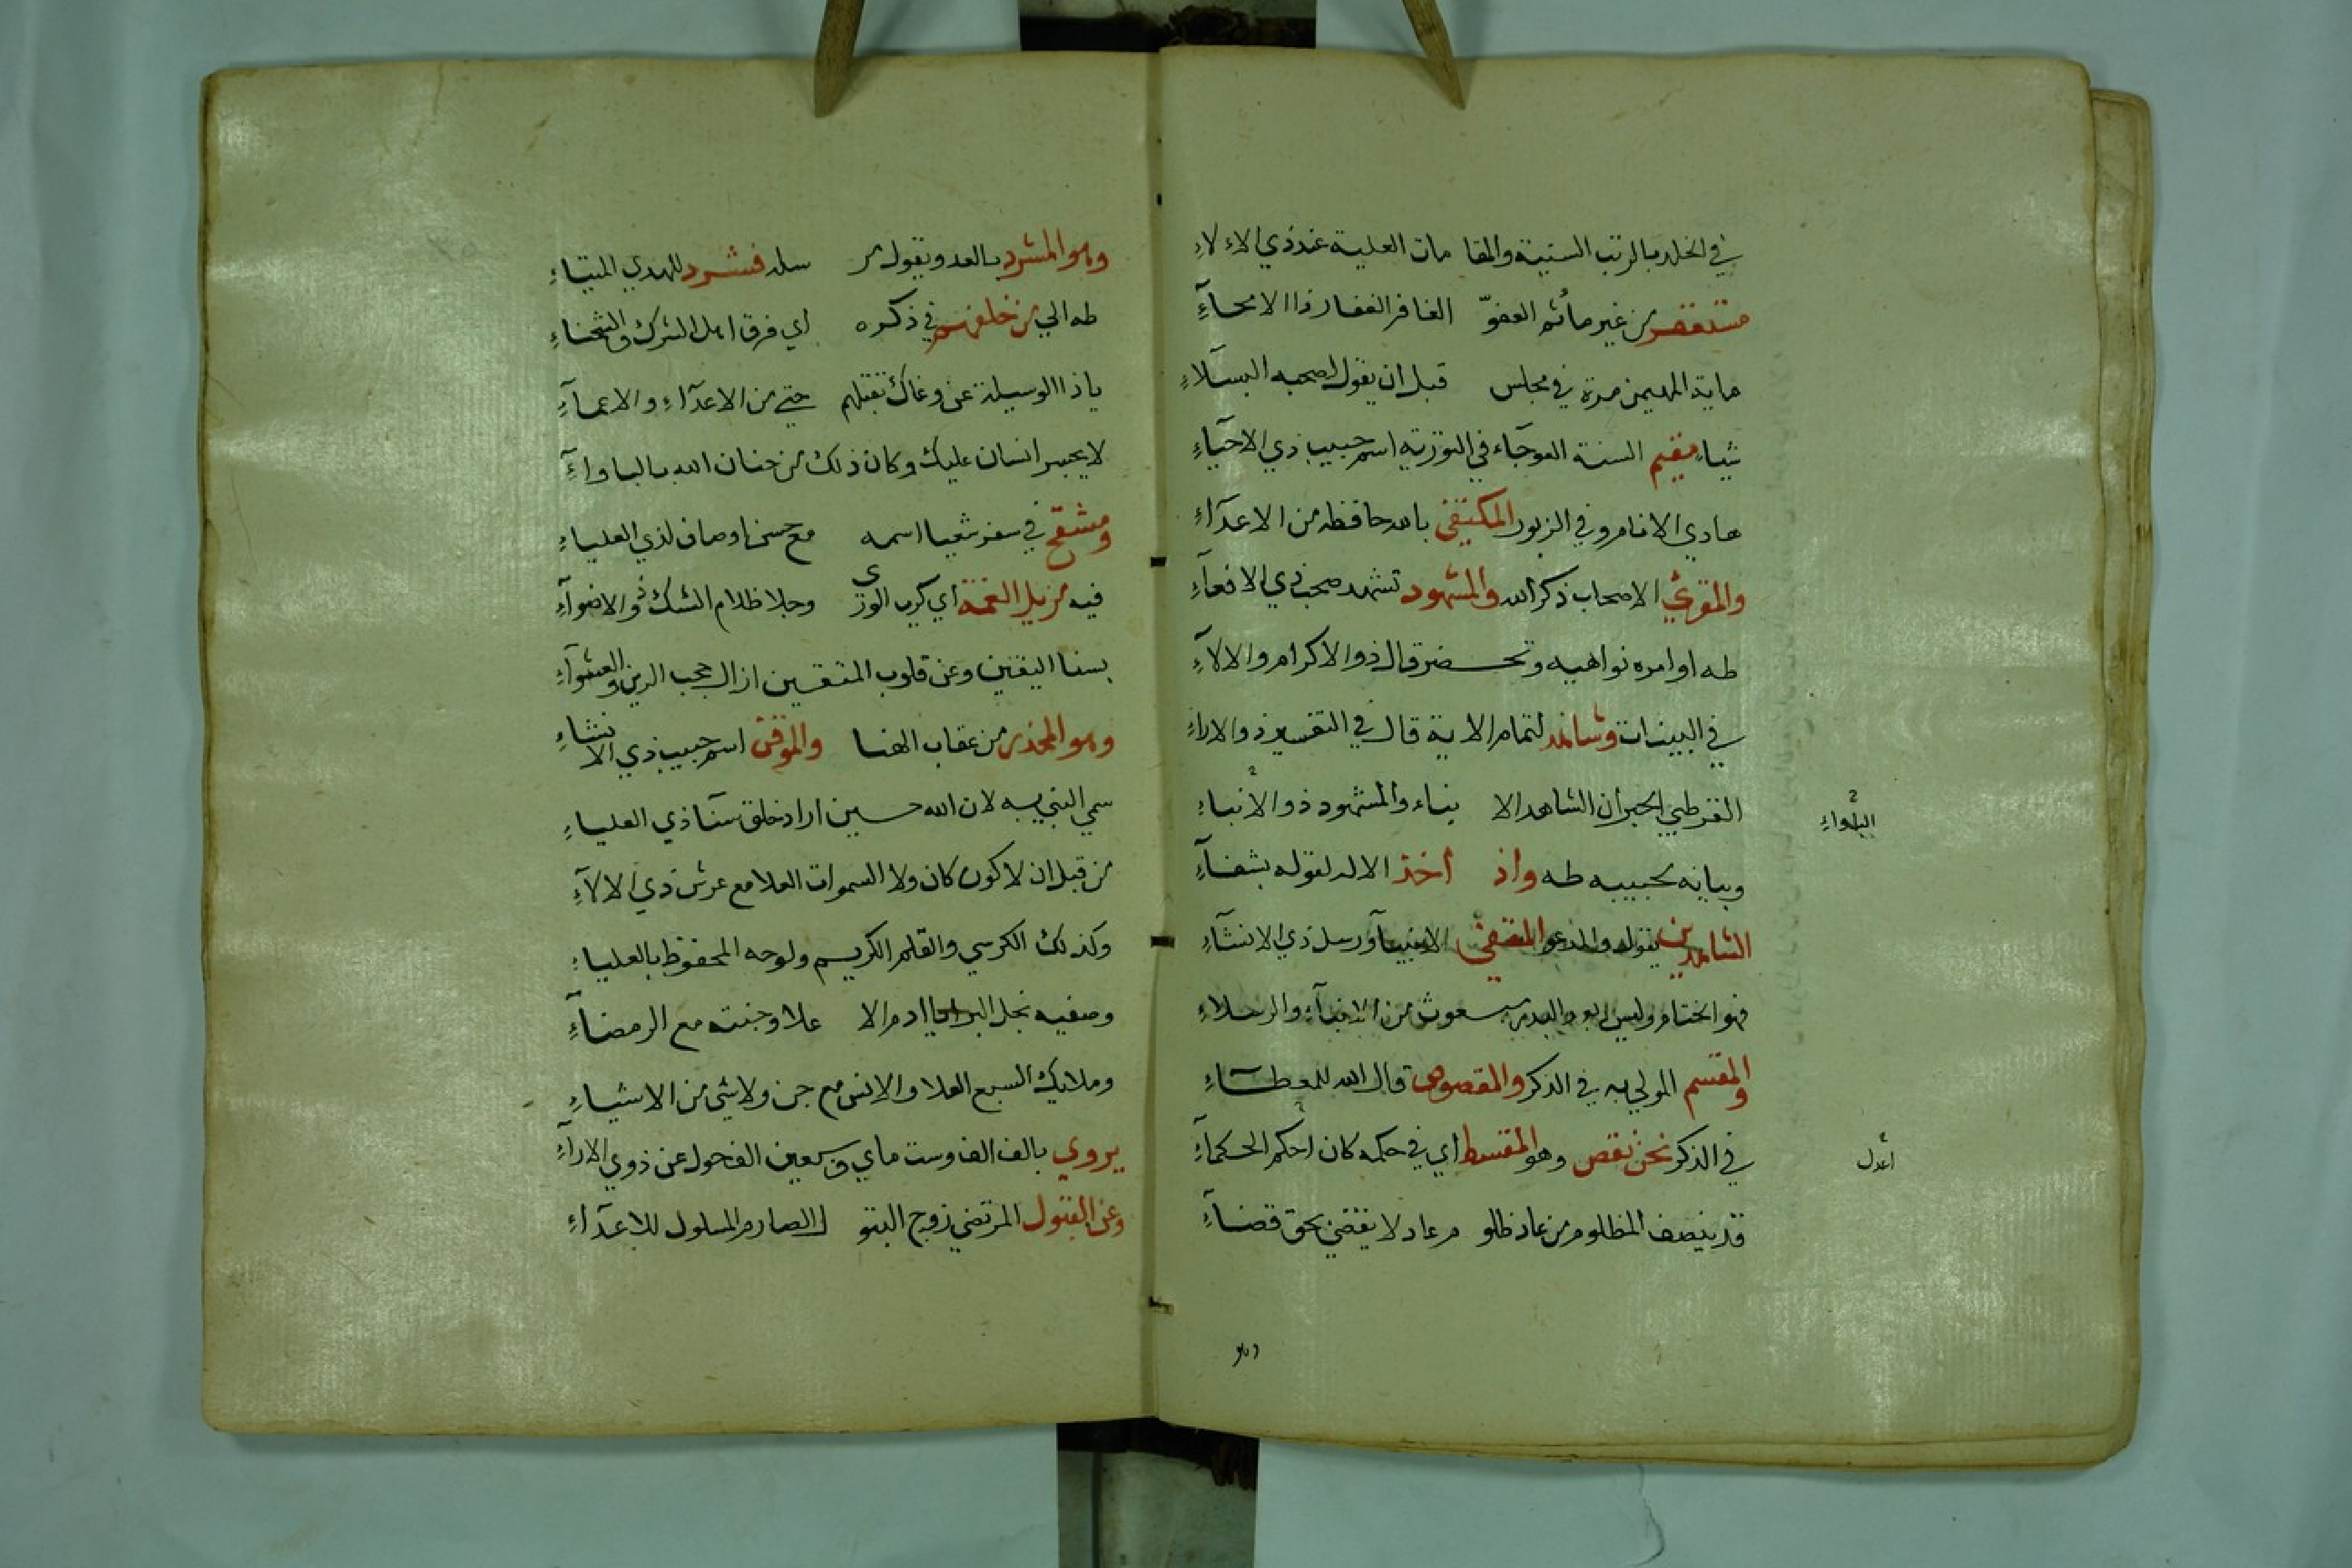 في الخلد بالرتب السنية والمقا مات العلية عند ذي الالاءِ
مستغفر من غير مأثم العفوّ الغافر الغفار ذا الامحآءِ
ماية المهيمن مرة في مجلس قبل ان يقول لصحبه البسلاءِ
شياء مقيم السنة العوجآء في التوزية اسم حبيب ذي الاحيآءِ
هادي الانام وفي الزبور المكتفى بالله حافظه من الاعدآءِ
والمقرئ الاصحاب ذكر الله والمشهود تشهد صحب ذي الافعآءِ
طه اوامره نواهيه وتحضر قال ذو الاكرام والالآءِ
في البينات وشاهد لتمام الاية قال في التفسير ذو الاراءِ
القرطبي الحبر ان الشاهد الا نبياء والمشهود ذو الانباءِ
البأواءِ
وبيانه لحبيبه طه واذ اخذ الاله لقوله بشفآءِ
الشاهدين بقوله والمدعو المقفى الانبيآ ورسل ذي الانشآءِ
فهو الختام وليس بعد البدر مبعوث من
والمقسم المولى به في الذكر والمقصوص قال الله للمعطآءِ
في الذكر نحن نقص وهو المقسط اي في حكمه كان احكم الحكمآءِ
اعدل
قد ينصف المظلوم من عاد ظلو م عاد لا يقضي بحق قضآءِ
وهو
وهو المشرد بالعدو بقول مر سله فشرد للهدى الميتاءِ
طه الي من خلفهم في ذكره اي فرق اهل الشرك والشحناءِ
ياذا الوسيلة عن وغاك بقتلهم حتى من الاعدآء والاعمآءِ
لا يجسر انسان عليك وكان ذلك من حنان الله بالباوآءِ
ومشقح في سفر شعيا اسمه مع حسن اوصاف لذي العلياءِ
فيه مزيل الغمة اي كرب الورى وجلا ظلام الشك ذو الاضوآءِ
بسنا اليقين وعن قلوب المتقين ازال حجب الرين والعشوآءِ
وهو المحذر من عقاب الهنا والموقن اسم حبيب ذي الانشاءِ
سمي النبي به لان الله حسين اراد خلق سنا ذي العلياءِ
من قبل ان لا كون كان ولا السموات العلا مع عرش ذي الالآءِ
وكذلك الكرسي والقلم الكريم ولوحه المحفوظ بالعلياءِ
وصفيه نجل البرايا ادم الا علا وجنته مع الرمضآءِ
وملايك السبع العلا والانس مع جن ولاشئ من الاشياءِ
يروى بالف الف وست ماي وسبعين الفحول عن ذوي الارآءِ
وعن القتول المرتضى زوج البتو ل الصارم المسلول للاعدآءِ